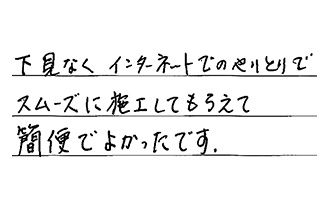 下見なく インターネットでのやりとりで
スムーズに施工してもらえて
簡便でよかったです.